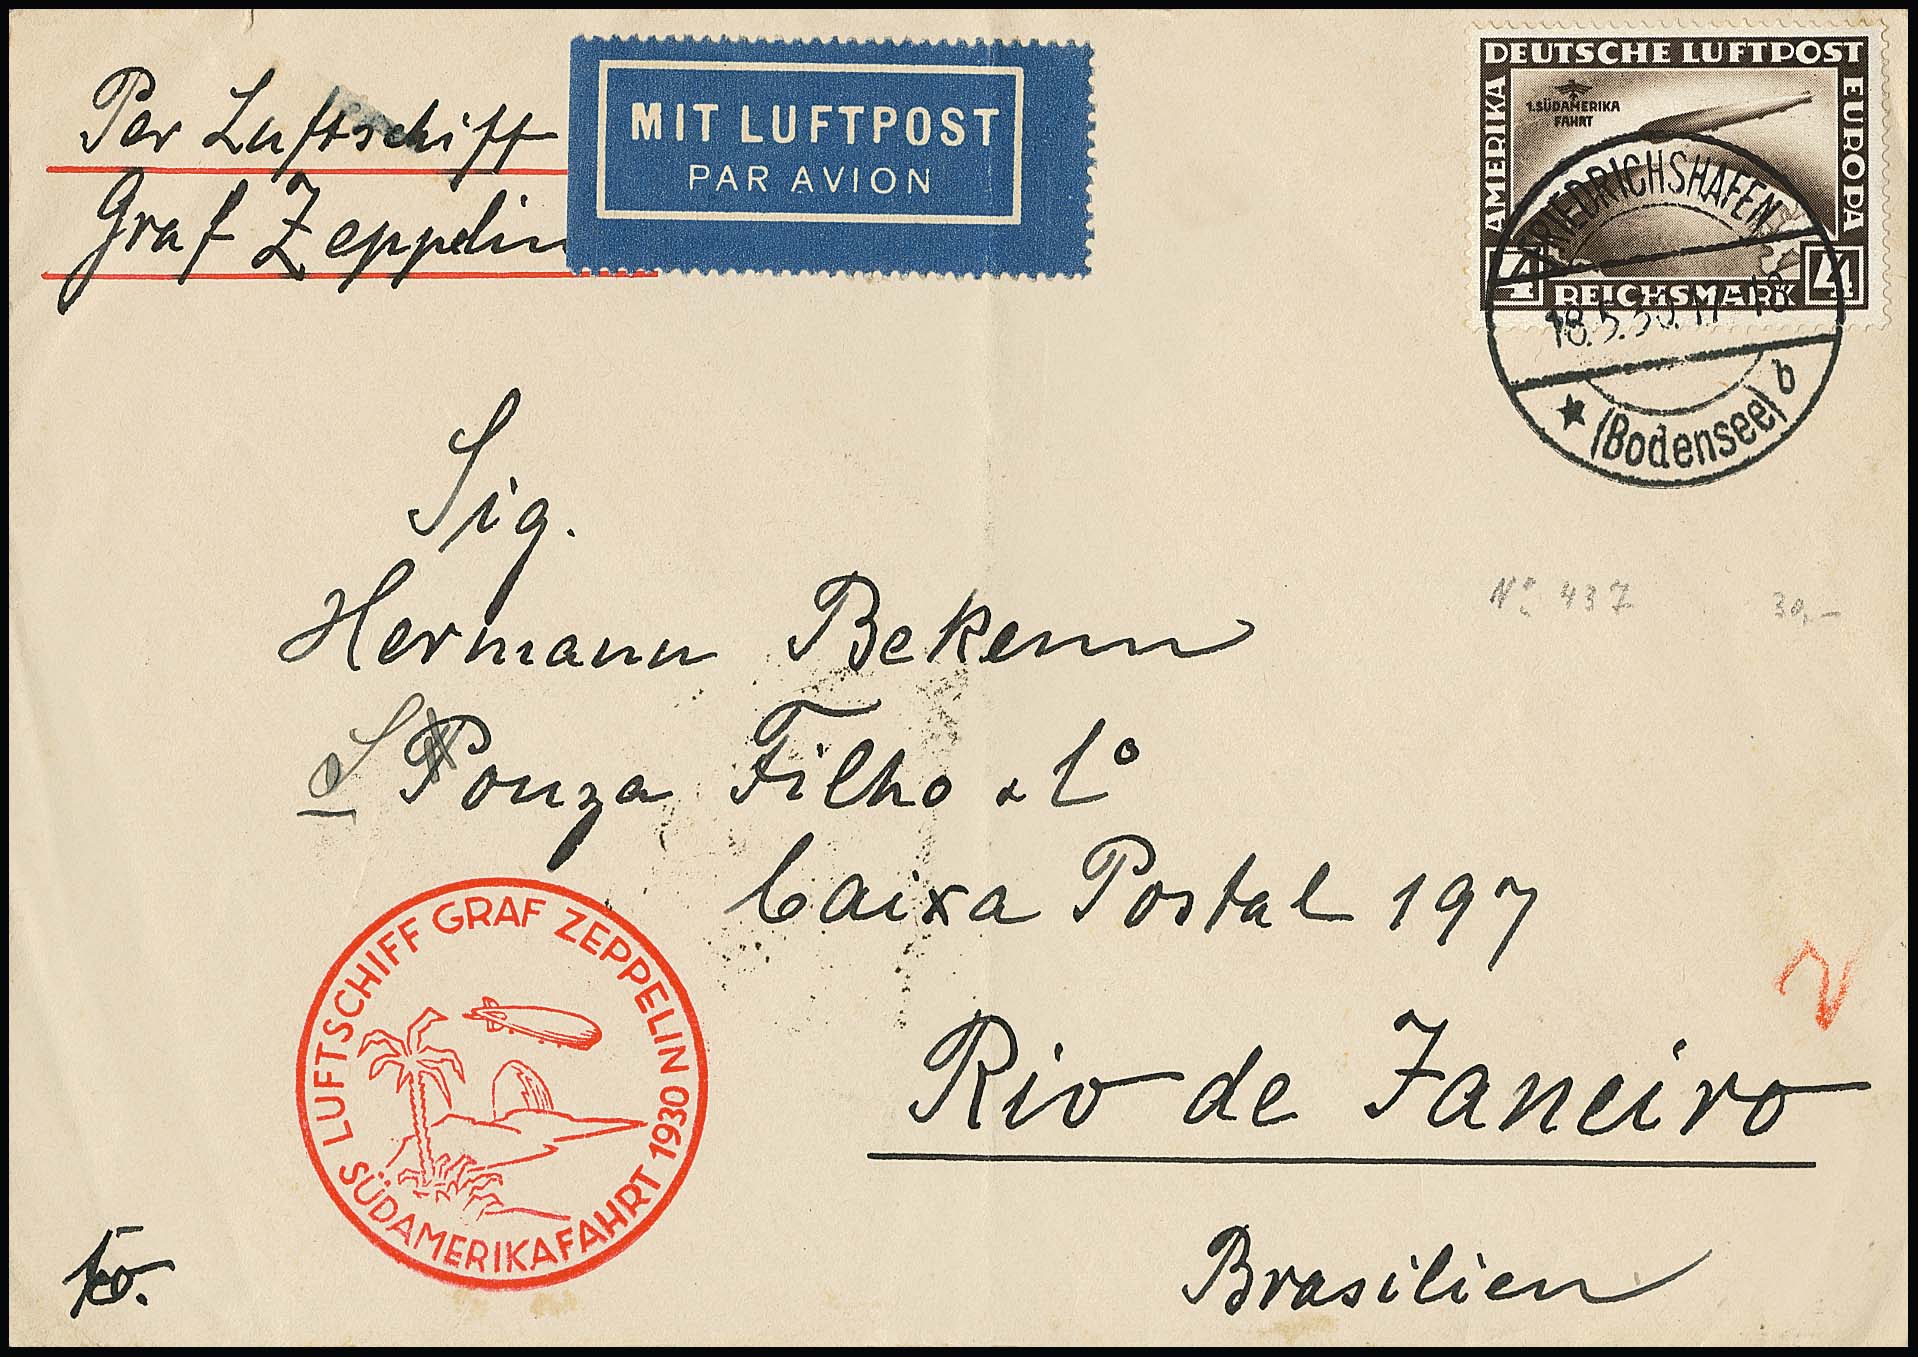 Per Luftschiff
Graf Zeppelin
MIT LUFTPOST
PAR AVION
DEUTSCHE LUFTPOST
AMERIKA
EUROPA
1.SÜDAMERIKA
FAHRT
4 REICHSMARK 4
FRIEDRICHSHAFEN
18.5.30.17-18
(Bodensee) b
Sig.
Hermann Bekenn
Nº 437 30,-
Pouza Filho & Cº
Caixa Postal 197
Rio de Janeiro
Brasilien
LUFTSCHIFF GRAF ZEPPELIN
SÜDAMERIKAFAHRT 1930